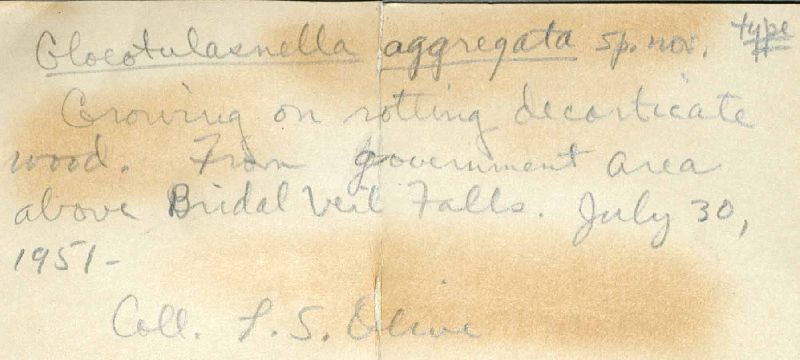 Gloeotulasnella aggregata sp. nov. type
Growing on rotting decorticate
wood. From government area
above Bridal Veil Falls. July 30,
1951-
Coll. L. S. Olive